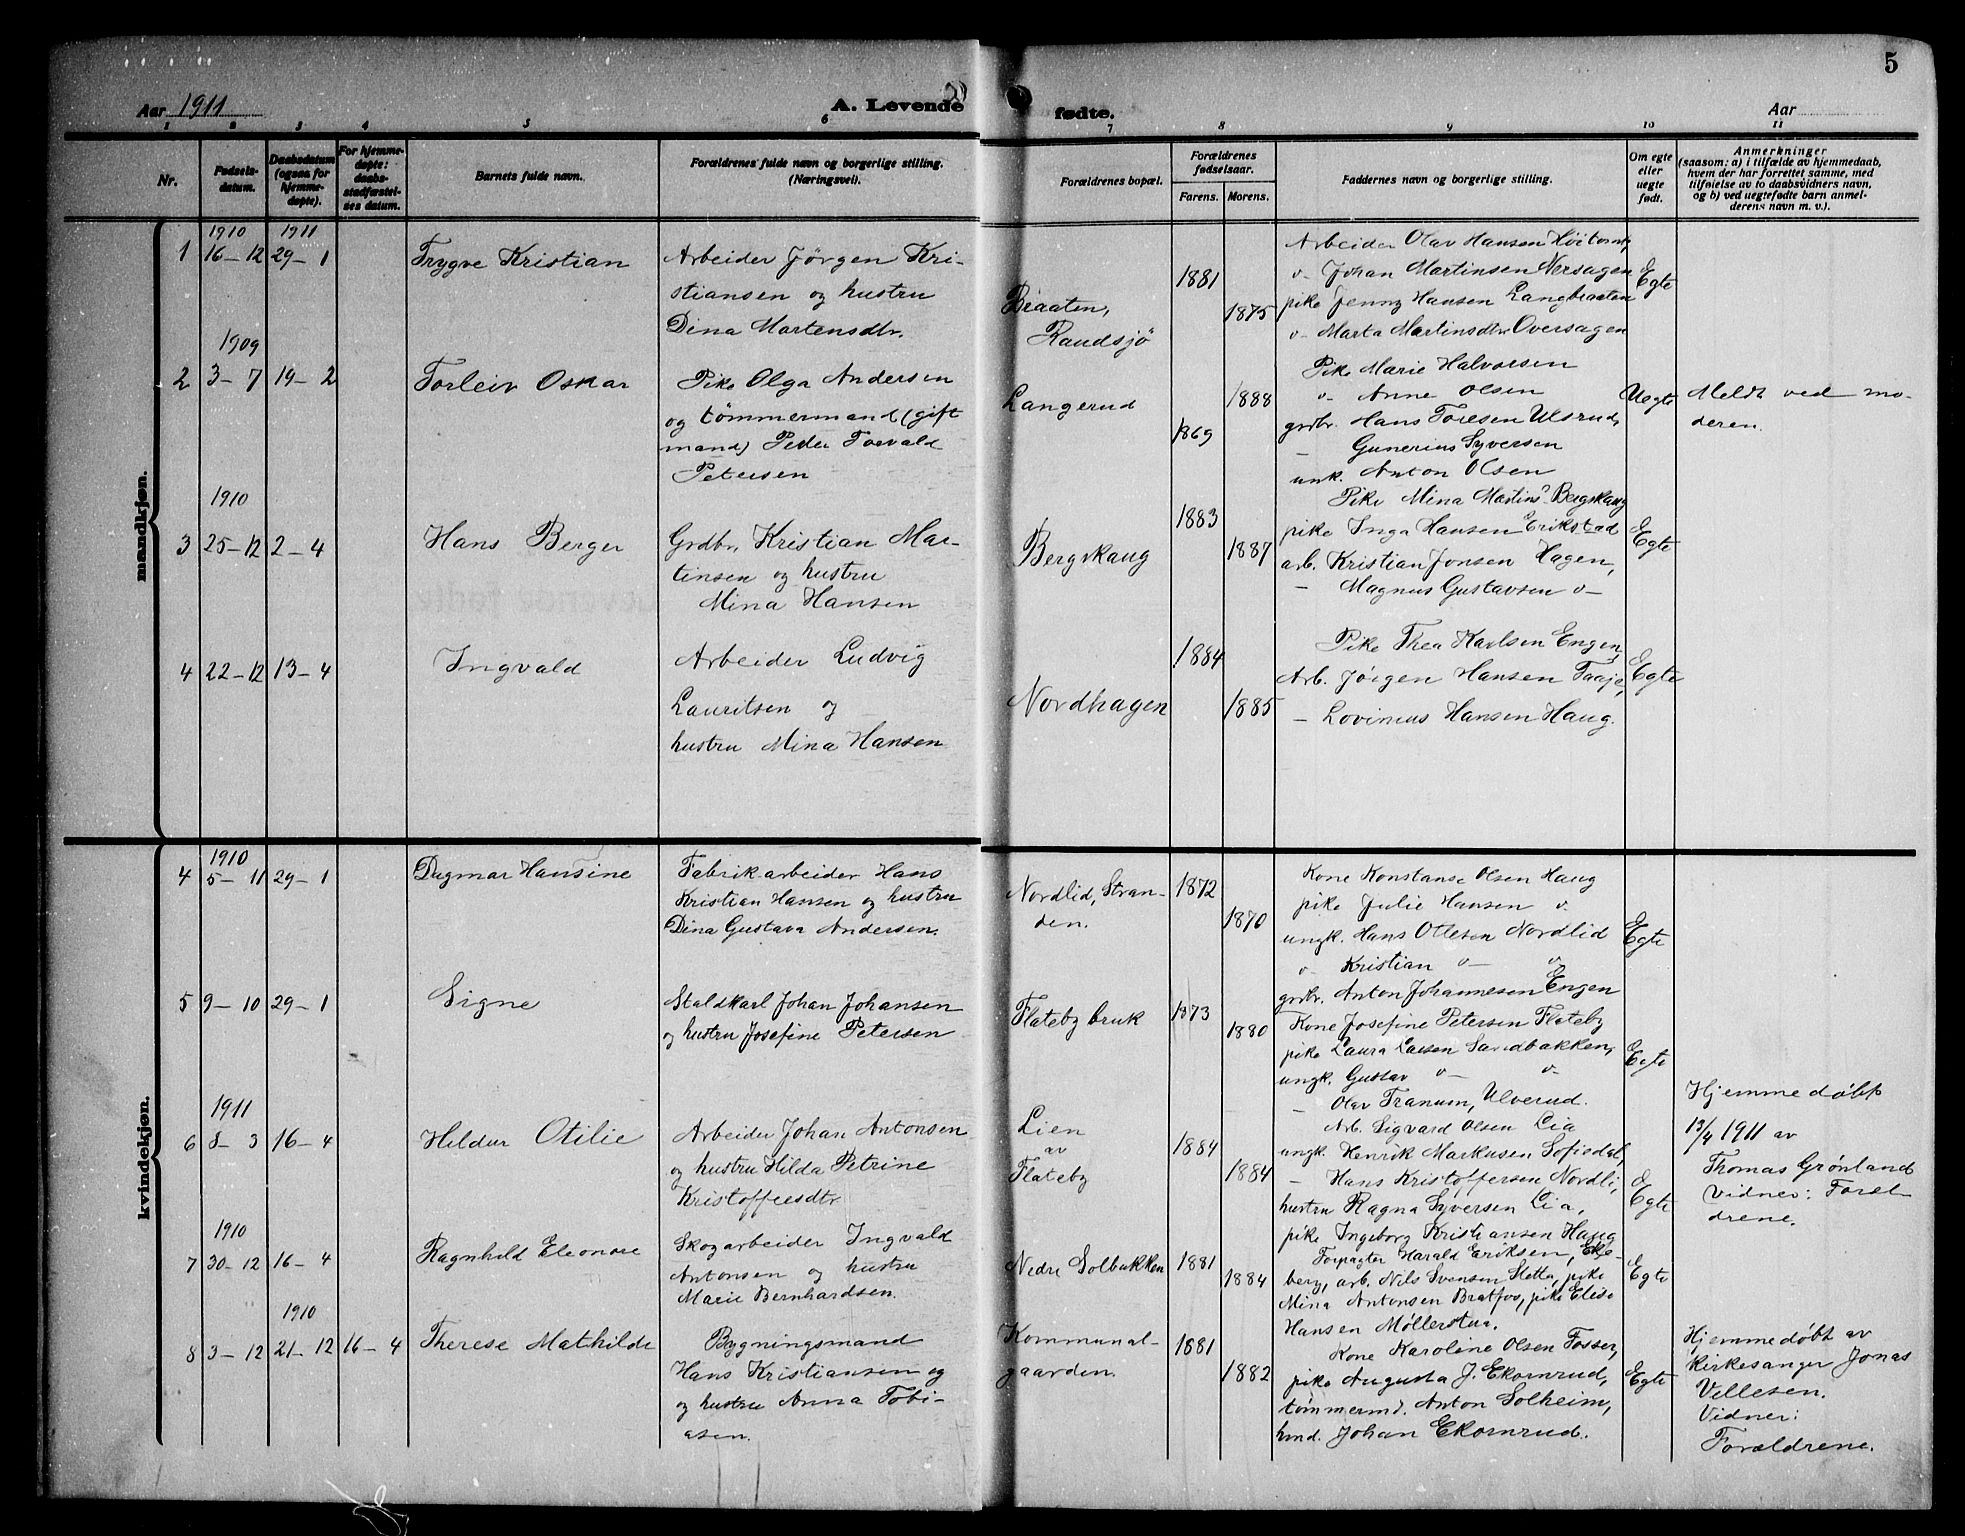 5
Aar 1911
A. Levende
fødte.
Aar
1 2 3 4 5 6 7 8 9 10 11
Nr.
Fødsels-
datum.
Daabsdatum
(ogsaa for
hjemme-
døpte).
For hjemme-
døpte:
daabs-
stadfæstel-
ses datum.
Barnets fulde navn.
Forældrenes fulde navn og borgerlige stilling.
(Næringsvei).
Forældrenes bopæl.
Forældrenes
fødselsaar.
Farens. Morens.
Faddernes navn og borgerlige stilling.
Om egte
eller
uegte
født.
Anmerkninger
(saasom: a) i tilfælde av hjemmedaab,
hvem der har forrettet samme, med
tilføielse av to daabsvidners navn,
og b) ved uegtefødte barn anmel-
derens navn m. v.).
mandkjøn.
1910 1911
1 16-12 29-1
Trygve Kristian
Arbeider Jörgen Kri-
stiansen og hustru
Dina Martensdtr.
Braaten,
Raudsjö
1881
1875
Arbeider Olav Hansen Höitomt,
v- Johan Martinsen Nersagen
pike Jenny Hansen Langbraaten
v- Marta Martinsdtr Oversagen
Egte
1909
2 3-7 19-2
Torleiv Oskar
Pike Olga Andersen
og tömmermand (gift
mand) Peder Torvald
Petersen
Langerud
1888
1869
Pike Marie Halvorsen
v- Anne Olsen
grdbr. Hans Toresen Ulsrud,
- Gunerius Syversen
unk. Anton Olsen
Uegte
Meldt ved mo-
deren.
1910
3 25-12 2-4
Hans Berger
Grdbr. Kristian Mar-
tinsen og hustru
Mina Hansen
Bergskaug
1883
1887
Pike Mina Martins? Bergskaug
pike Inga Hansen Erikstad
arb. Kristian Jonsen Hagen,
- Magnus Gustavsen v-
Egte
4 22-12 13-4
Ingvald
Arbeider Ludvig
Lauritsen og
hustru Mina Hansen
Nordhagen
1884
1885
Pike Thea Karlsen Engen,
Arb. Jörgen Hansen Taaje,
- Lovinius Hansen Haug.
Egte
kvindekjøn.
1910
4 5-11 29-1
Dagmar Hansine
Fabrikarbeider Hans
Kristian Hansen og hustru
Dina Gustava Andersen.
Nordlid, Stran-
den.
1872
1870
Kone Konstanse Olsen Haug
pike Julie Hansen v-
ungk. Hans Ottesen Nordlid
v- Kristian v- v-
grdbr. Anton Johannesen Engen
Egte
5 9-10 29-1
Signe
Staldkarl Johan Johansen
og hustru Josefine Petersen
Flateby bruk
1873
1880
Kone Josefine Petersen Flateby
pike Laura Larsen Sandbakken,
ungk. Gustav v- v-
- Olav Tranum, Ulverud.
Egte
1911
6 8-3 16-4
Hildur Otilie
Arbeider Johan Antonsen
og hustru Hilda Petrine
Kristoffersdtr
Lien
av
Flateby
1884
1884
Arb. Sigvard Olsen Lia
ungk. Henrik Markusen Sofiedal,
- Hans Kristoffersen Nordli,
hustru Ragna Syversen Lia,
pike Ingeborg Kristiansen Haug
Egte
Hjemmedöbt
13/4 1911 av
Thomas Grönland
Vidner: Foræl
drene.
1910
7 30-12 16-4
Ragnhild Eleonore
Skogarbeider Ingvald
Antonsen og hustru
Marie Bernhardsen.
Nedre Solbakken
1881
1884
Forpagter Harald Eriksen, Eke-
berg, arb. Nils Svensen Sletta, pike
Mina Antonsen Bratfos, pike Elise
Hansen Möllerstua.
Egte
1910
8 3-12 21-12 16-4
Therese Mathilde
Bygningsmand
Hans Kristiansen og
og hustru Anna Tobi-
asen.
Kommunal-
gaarden.
1881
1882
Kone Karoline Olsen Fosser,
pike Augusta J. Ekornrud,
tömmermd. Anton Solheim,
hmd. Johan Ekornrud.
Egte
Hjemmedöbt av
kirkesanger Jonas
Vellesen.
Vidner:
Forældrene.